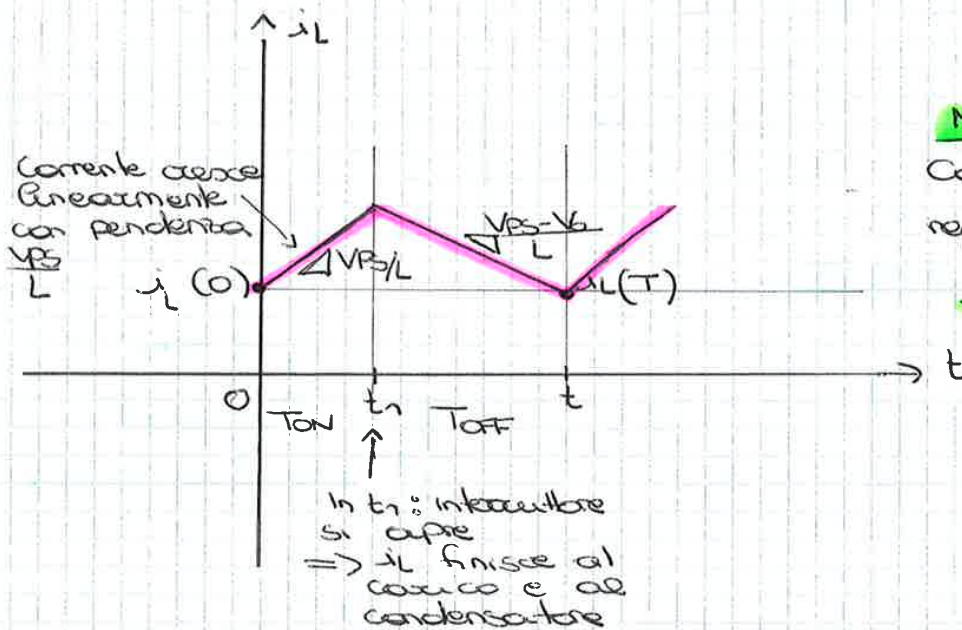 iL
Corrente cresce
linearmente
con pendenza
VPS
L
VPS/L
VPS-Vo
L
iL (0)
iL(T)
0
TON
t1
TOFF
t
t
In t1: interruttore
si apre
=> iL finisce al
carico e al
condensatore
Co